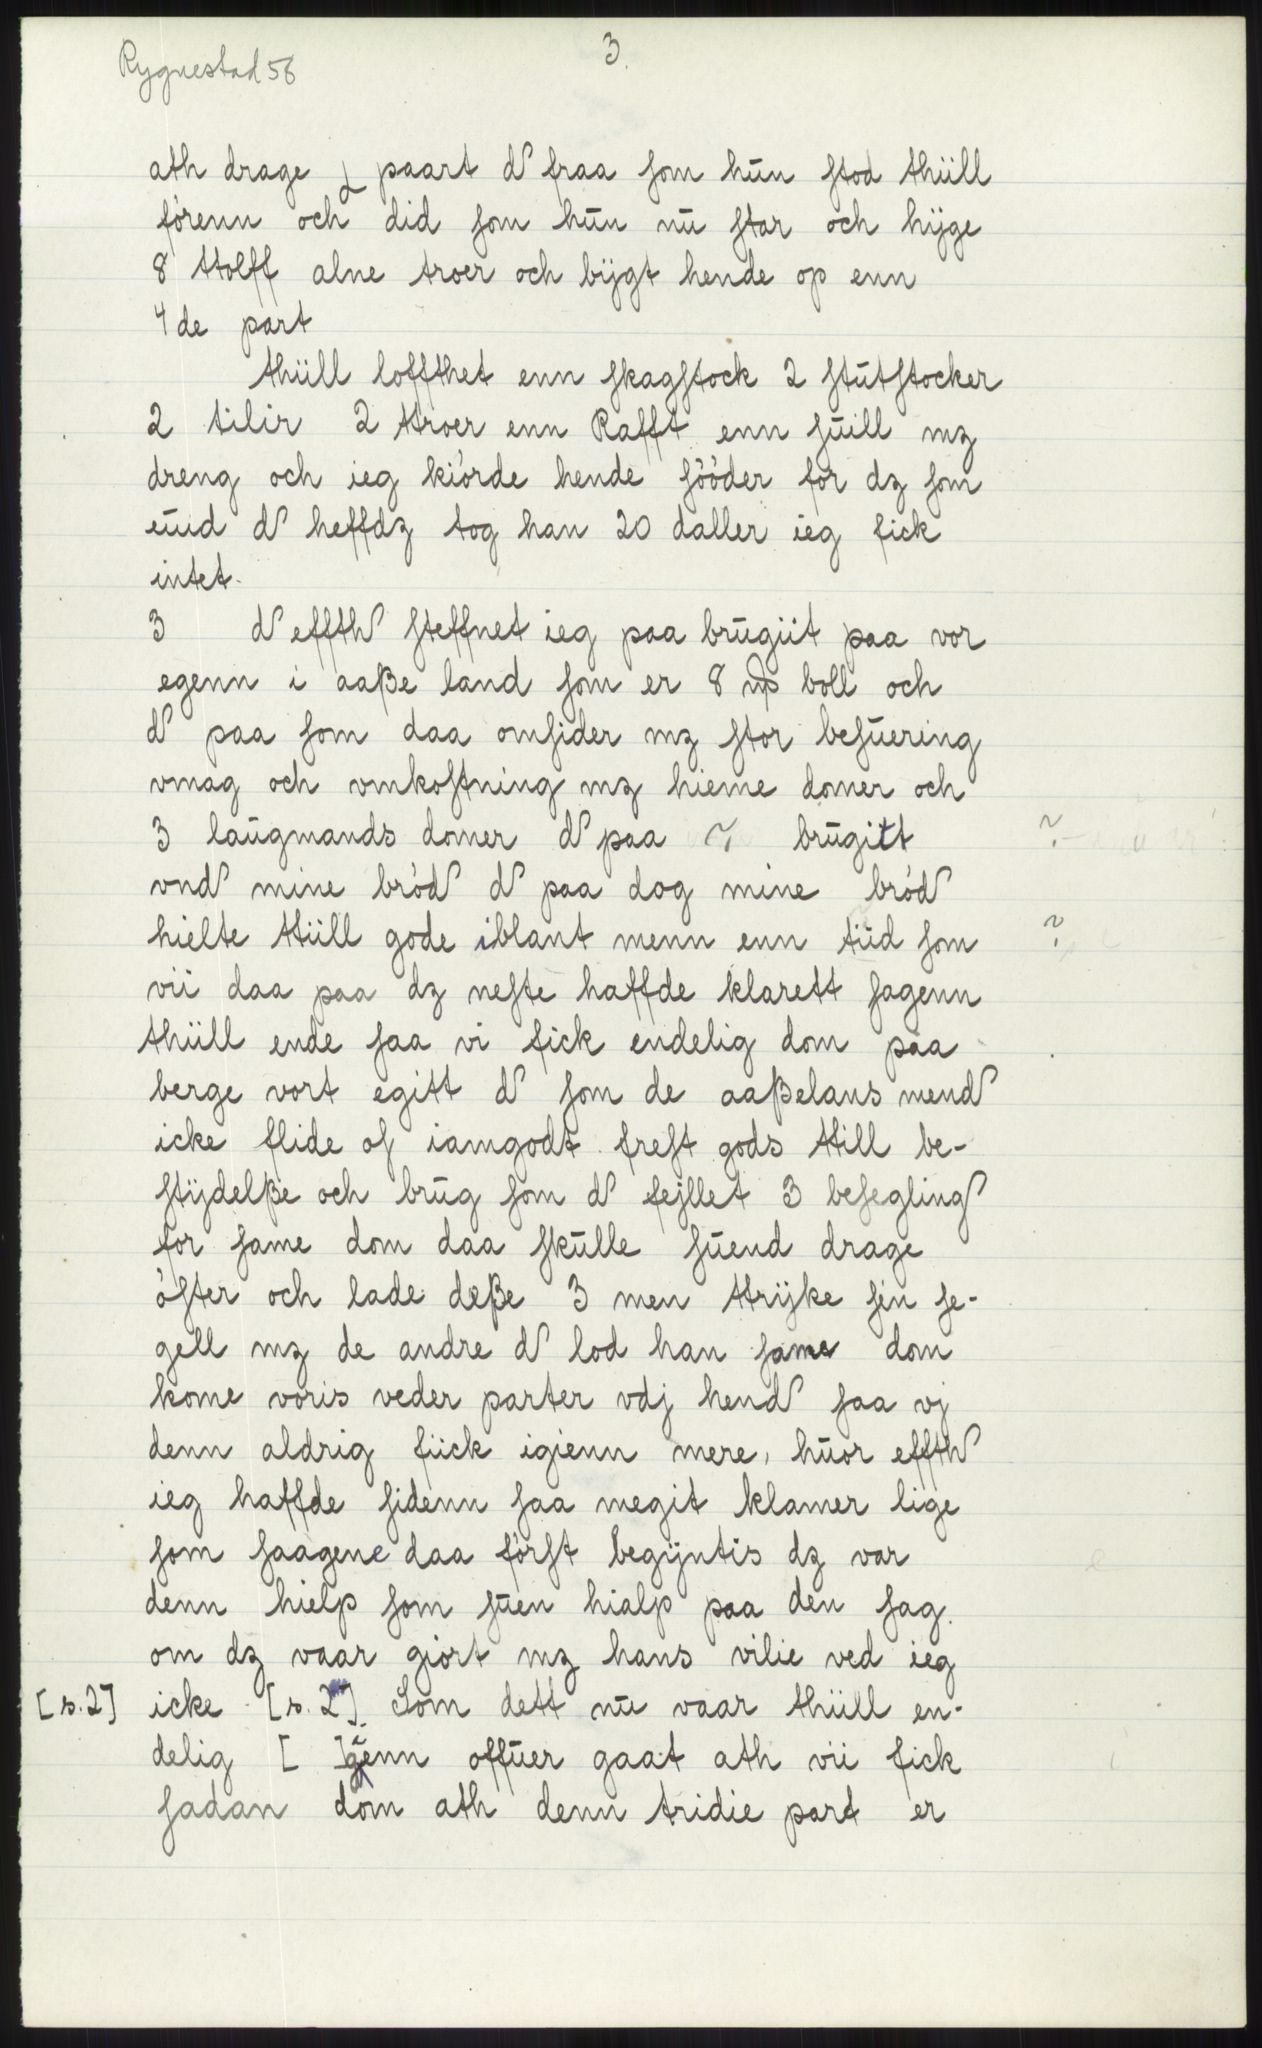 Rygnestad 56
3.
ath drage paart d fraa ſom hūn ſtod thiill
førenn och did ſom hūn nū ſtar och hÿge
8 ttolff alne troer och bÿgt hende op enn
4de part
thiill loffthet enn ſkagſtock 2 ſtūtſtocker
2 tilir 2 ttroer enn Rafft enn ſūill mz
dreng och ieg kiórde hende ſóóder for dz ſom
eūd d heffdz tog han 20 daller ieg fick
intet.
3 d effth ſteffnet ieg paa brūgiit paa vor
egenn i aaße land ſom er 8 boll och
d paa ſom daa omſider mz ſtor beſūering
vmag och vmkoſtning mz hieme domer och
3 laūgmands domer d paa brūgitt ?
vnd mine bród d paa dog mine bród
hielte ttiill gode iblant menn enn tiid ſom ?
vii daa paa dz neſte haffde klarett ſagenn
thiill ende ſaa vi fick endelig dom paa
berge vort egitt d ſom de aaßelans mend
icke flide of iamgodt freſt gods ttill be-
ſtÿdelße och brūg ſom d fejllet 3 beſegling
for ſame dom daa ſkūlle ſūend drage
óſter och lade deße 3 men ttrÿke ſin ſe-
gell mz de andre d lod han ſame dom
kome voris veder parter vdj hend ſaa vj
denn aldrig fiick igienn mere, hūor effth
ieg haffde ſidenn ſaa megit klamer lige
ſom ſaagene daa fórſt begÿntis dz var
denn hielp ſom ſūen hialp paa den ſag.
om dz vaar giort mz hans vilie ved ieg
[s. 2] icke [s. 2] Som dett nū vaar thiill en-
delig [ ]genn offūer gaat ath vii fick
ſadan dom ath denn tridie part er